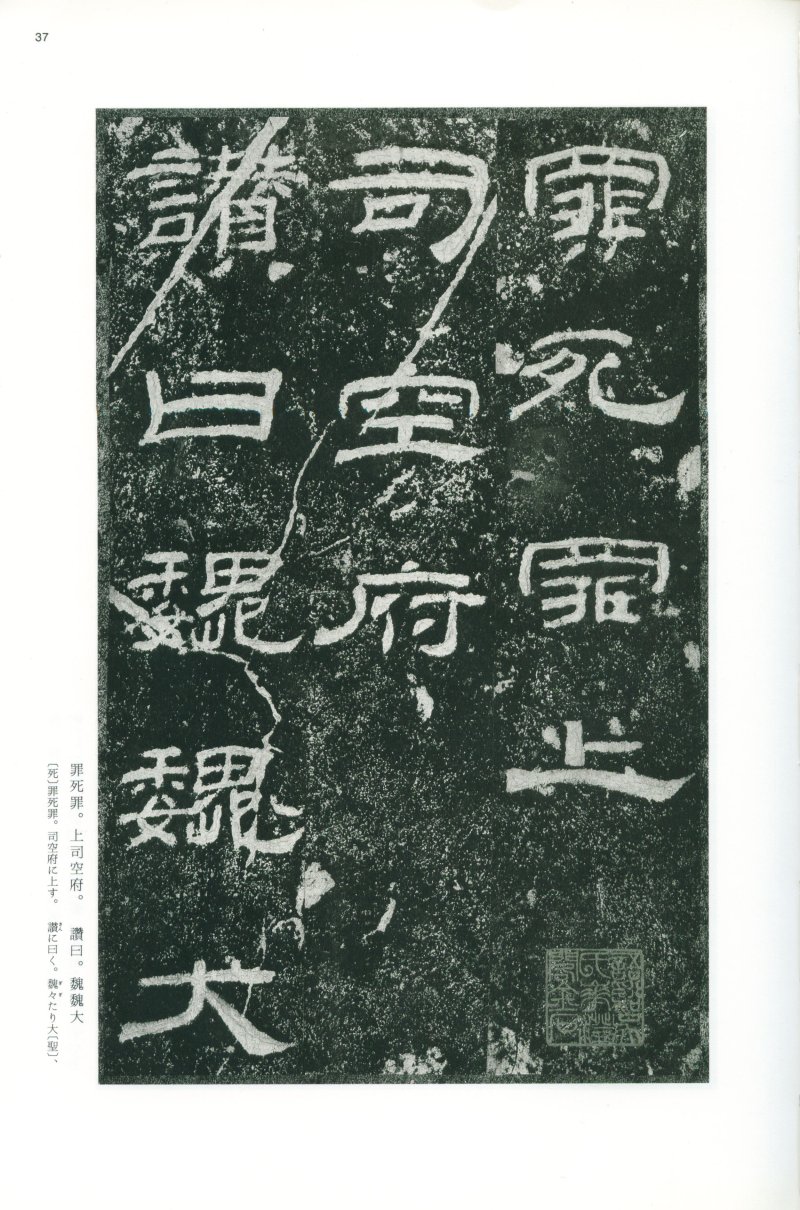 37
罪死罪上
司空府
讃曰魏魏大
罪死罪。上司空府。　讚曰。魏魏大
〔死〕罪死罪。司空府に上す。　讚に曰く。魏々たり大〔聖〕、